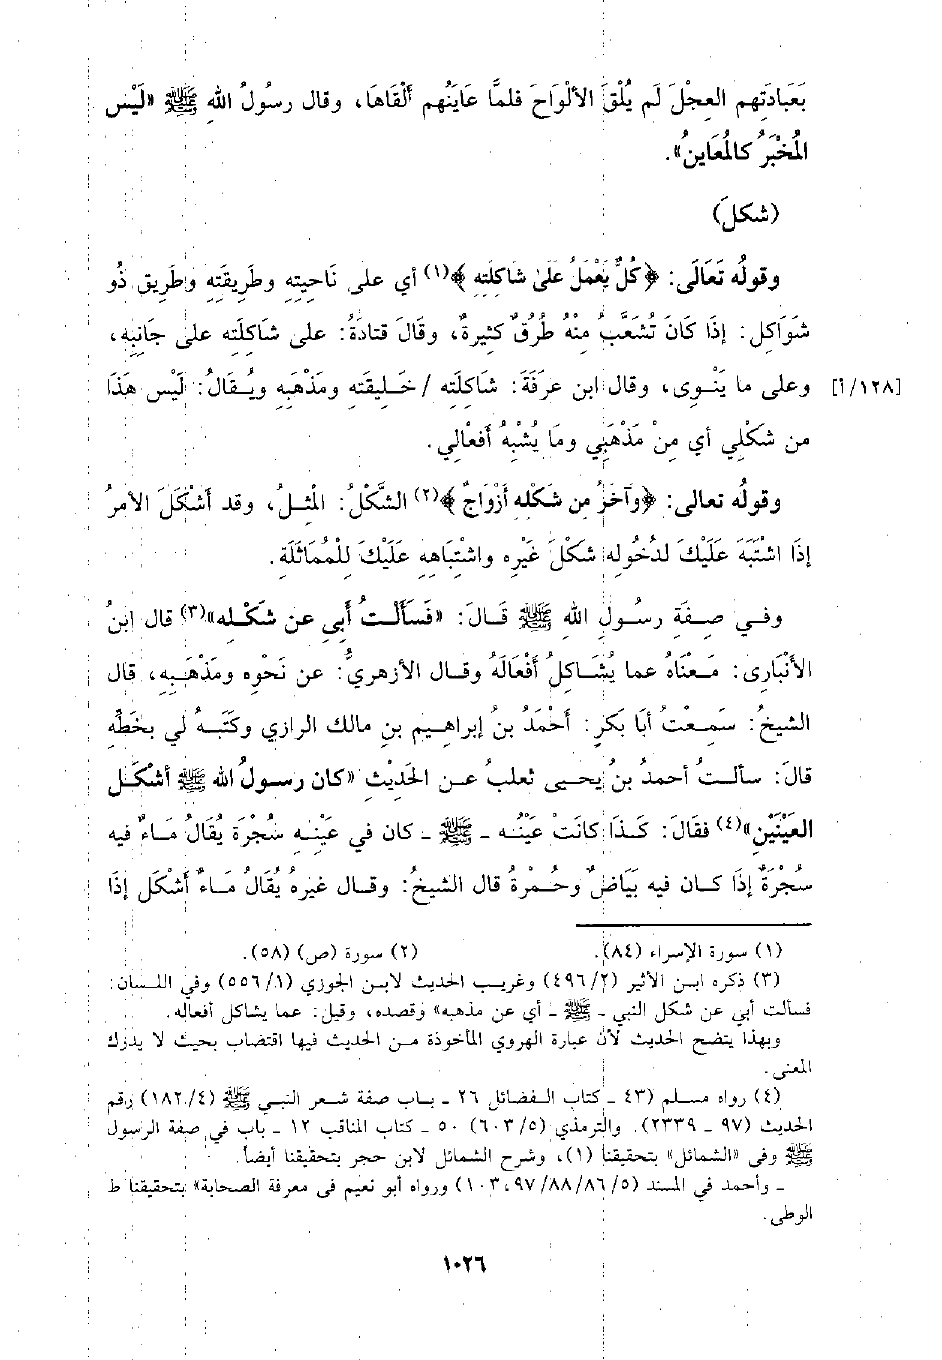 بَعَبادَتِهم العِجْلَ لَم يُلْقِ الأَلْوَاحَ فلمَّا عَايَنُهم أَلْقَاهَا، وقال رسُولُ اللهِ ﷺ «لَيْس
المُخْبَرُ كالمُعَاينُ».
(شكلَ)
وقولُه تَعَالَى: ﴿كُلٌّ يَعْمَلُ عَلىٰ شَاكِلَتِهِ﴾(١) أي على نَاحِيتِهِ وطَرِيقَتِهِ وطَرِيق ذُو
شَوَاكل: إذَا كَانَ تُشَعَّبُ مِنْهُ طُرُقٌ كثيرةٌ، وقَالَ قتادَةُ: على شاكلَته على جَانبِه،
[١٢٨/أ] وعلى ما يَنْوِى، وقال ابن عرَفَةَ: شَاكلَته / خَلِيقَته ومَذْهَبِه ويُقَالُ: لَيْس هَذَا
من شَكْلِي أي مِنْ مَذْهَبَي ومَا يُشْبهُ أفعْالي.
وقولُه تعالى: ﴿وآخَرُ مِن شَكْلِهِ أَزْوَاجٌ﴾(٢) الشَّكْلُ: المْثلُ، وقد أشْكَلَ الأمرُ
إذَا اشْتَبَهَ عَلَيْكَ لدُخُوله شكْلَ غَيْرِه واشْتِباهِهِ عَلَيْكَ لِلْمُمَاثَلَة.
وفي صِفَة رسُولِ اللهِ ﷺ قَالَ: «فَسَأَلْتُ أَبِي عن شَكْلِه»(٣) قال ابنُ
الأنْبَارِى: مَعْنَاهُ عما يُشَاكِلُ أفْعَالَهُ وقال الأزهريُّ: عن نَحْوِه ومَذْهَبِه، قال
الشيخُ: سَمِعتُ أبَا بَكرٍ: أحْمَدُ بنُ إبراهِيم بنِ مالك الرازي وكَتَبَهُ لي بخطِّه
قالَ: سألتُ أحمدُ بنُ يحيى ثعلبُ عن الحَديْث «كان رسولُ الله ﷺ أشْكَل
العَيْنَيْن»(٤) فقَالَ: كَذَا كانَتْ عَيْنُه ـ ﷺ ـ كان في عَيْنِه سُجْرَة يُقَالُ مَاءٌ فيه
سُجْرَةٌ إذَا كَان فيه بَيَاضٌ وحُمْرةُ قال الشيخُ: وقال غيرهُ يُقَالُ مَاءٌ أشْكَل إذَا
(١) سورة الإسراء (٨٤). (٢) سورة (ص) (٥٨).
(٣) ذكره ابن الأثير (٤٩٦/٢) وغريب الحديث لابن الجوزي (٥٥٦/١) وفي اللسان:
فسألت أبي عن شكل النبي ـ ﷺ ـ أي عن مذهبه» وقصده، وقيل: عما يشاكل أفعاله.
وبهذا يتضح الحديث لأن عبارة الهروي المأخوذة من الحديث فيها اقتضاب بحيث لا يدرك
المعنى.
(٤) رواه مسلم (٤٣ ـ كتاب الفضائل ٢٦ ـ باب صفة شعر النبي ﷺ (٤/ ١٨٢٠) رقم
الحديث (٩٧ ـ ٢٣٣٩). والترمذي (٦٠٣/٥) ٥٠ ـ كتاب المناقب ١٢ ـ باب في صفة الرسول
ﷺ وفى «الشمائل» بتحقيقنا (١)، وشرح الشمائل لابن حجر بتحقيقنا أيضاً.
ـ وأحمد في المسند (٥/ ٨٦/ ٨٨/ ٩٧، ١٠٣) ورواه أبو نعيم فى معرفة الصحابة» بتحقيقنا ط
الوطى.
١٠٢٦